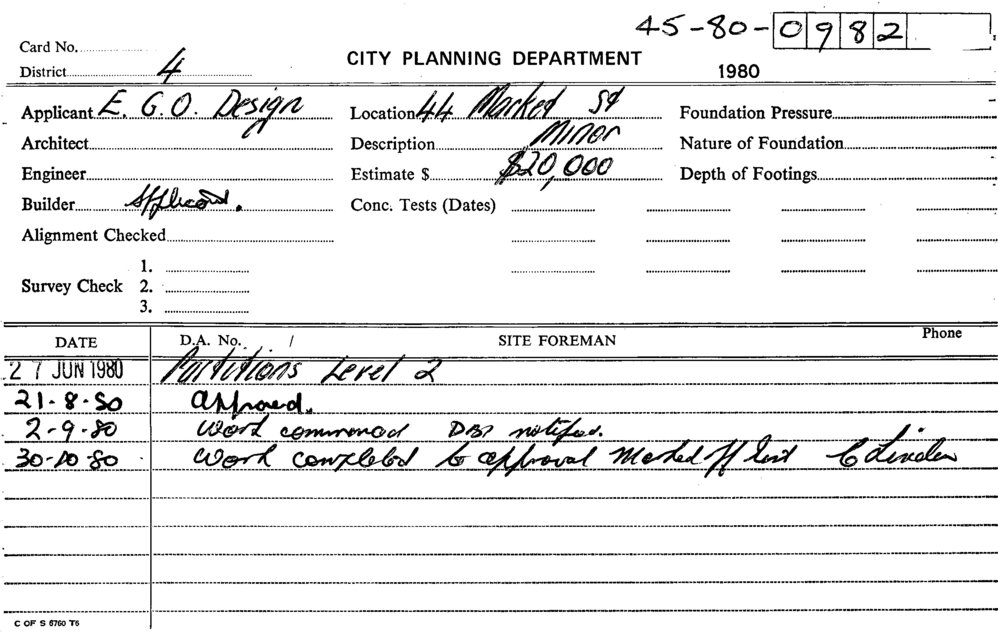 45-80-0982
Card No.
District 4
CITY PLANNING DEPARTMENT
1980
Applicant E. G.O. Design
Location 44 Market St
Foundation Pressure
Architect
Description Minor
Nature of Foundation
Engineer
Estimate $ $20,000
Depth of Footings
Builder Applicant.
Conc. Tests (Dates)
Alignment Checked
Survey Check
1.
2.
3.
DATE
D.A. No. /
SITE FOREMAN
Phone
27 JUN 1980 Partitions Level 2
21-8-80 Approved.
2-9-80 Work commenced notified.
30-10-80 Work completed to approval Marked off
C OF S 6760 T6